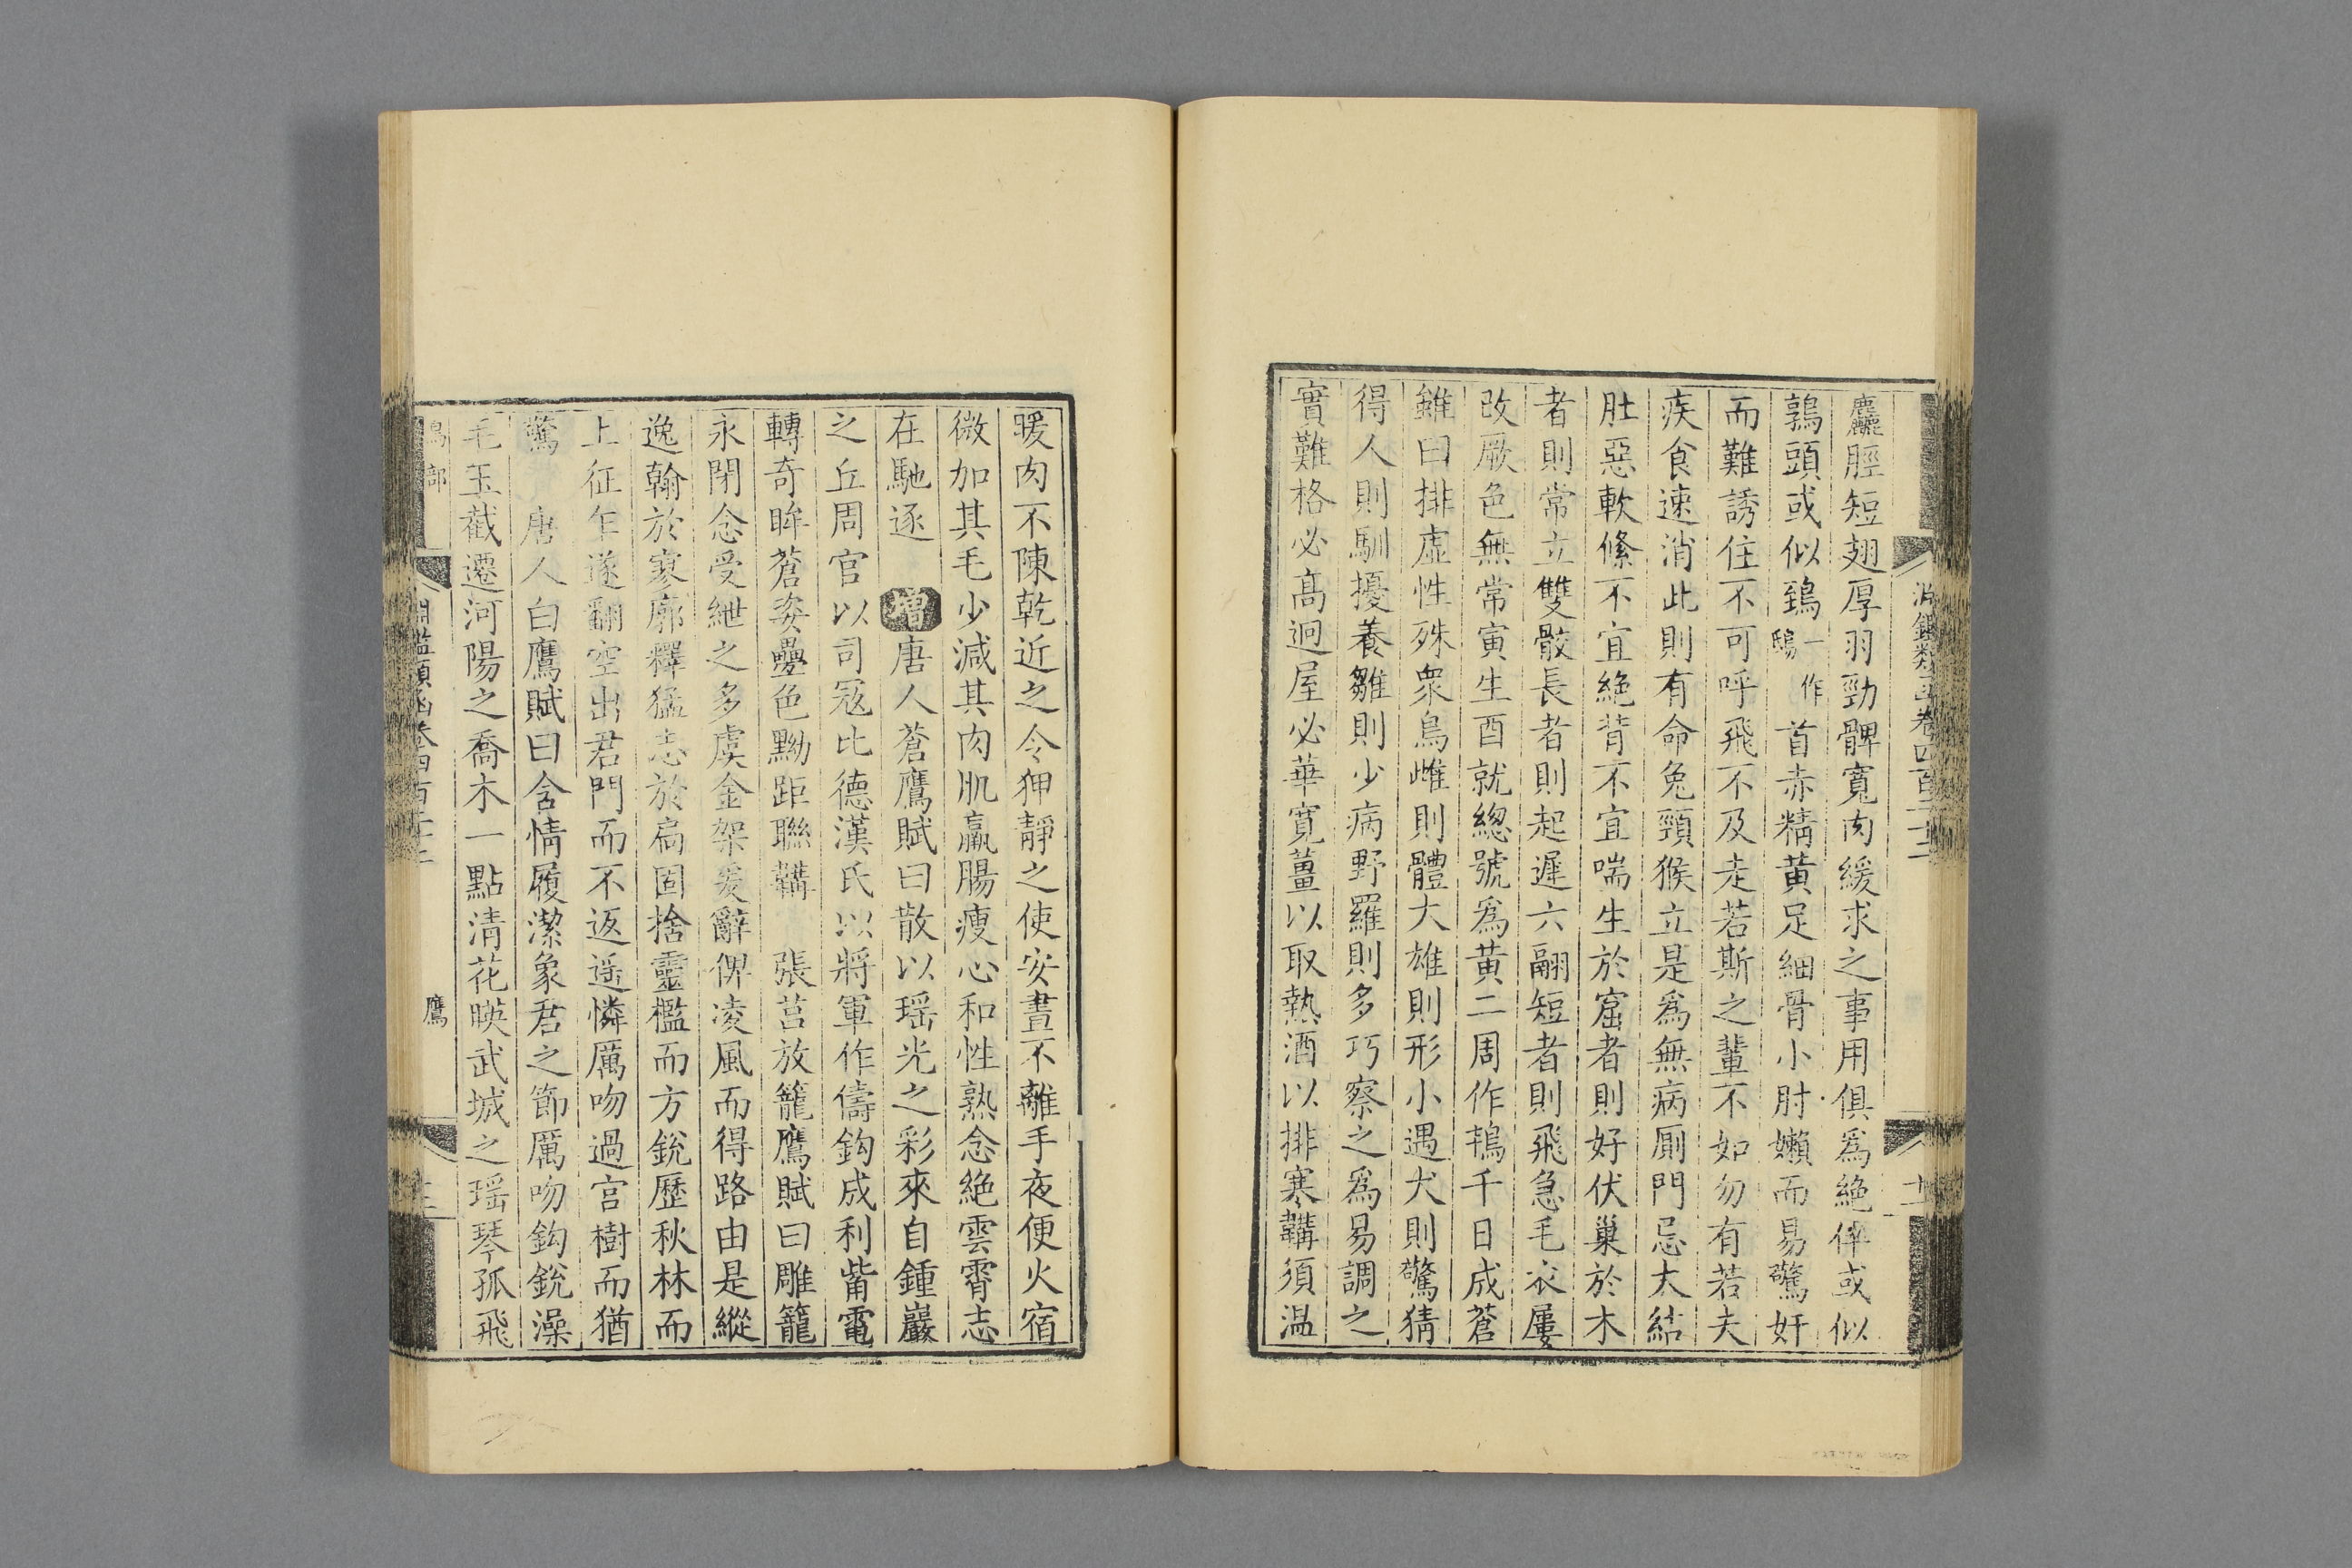 麤脛短翅厚羽勁髀寬肉緩求之事用俱爲絶倅或似
鶉頭或似鵄一作鴟首赤精黃足細骨小肘嬾而易驚奸
而難誘住不可呼飛不及走若斯之輩不如勿有若夫
疾食速消此則有命兔頸猴立是爲無病厠門忌大結
肚惡軟絛不宜絶背不宜喘生於窟者則好伏巢於木
者則常立雙骹長者則起遲六翮短者則飛急毛衣屢
改厥色無常寅生酉就總號爲黃二周作鴘千日成蒼
雖曰排虛性殊衆鳥雌則體大雄則形小遇犬則驚猜
得人則馴擾養雛則少病野羅則多巧察之爲易調之
實難格必高迥屋必華寬薑以取熱酒以排寒韝須温
暖肉不陳乾近之令狎靜之使安晝不離手夜便火宿
微加其毛少減其肉肌羸腸瘦心和性熟念絶雲霄志
在馳逐 增唐人蒼鷹賦曰散以瑶光之彩來自鍾巖
之丘周官以司冦比德漢氏以將軍作儔鈎成利觜電
轉奇眸蒼姿疊色黝距聯韝 張莒放籠鷹賦曰雕籠
永閉念受紲之多虞金架爰辭俾凌風而得路由是縱
逸翰於寥廓釋猛志於扃固捨靈檻而方銳歷秋林而
上征乍遂翻空出君門而不返遥憐厲吻過宫樹而猶
驚 唐人白鷹賦曰含情履潔象君之節厲吻鈎銳澡
毛玉截遷河陽之喬木一點清花暎武城之瑶琴孤飛
鳥部 淵鑑類函卷四百二十二 鷹